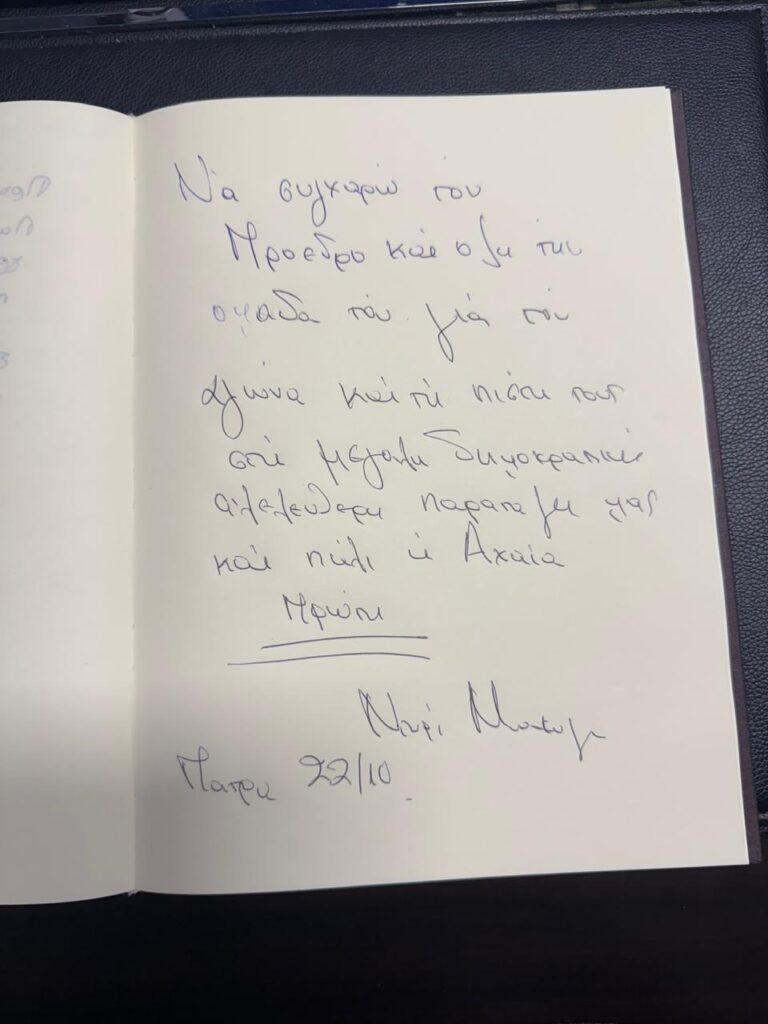 Να συγχαρώ τον
Πρόεδρο και όλη την
ομάδα του για τον
αγώνα και τη πίστη τους
στη μεγάλη δημοκρατική
φιλελεύθερη παράταξη μας
και πάλι η Αχαϊα
πρώτη
Πάτρα 22/10